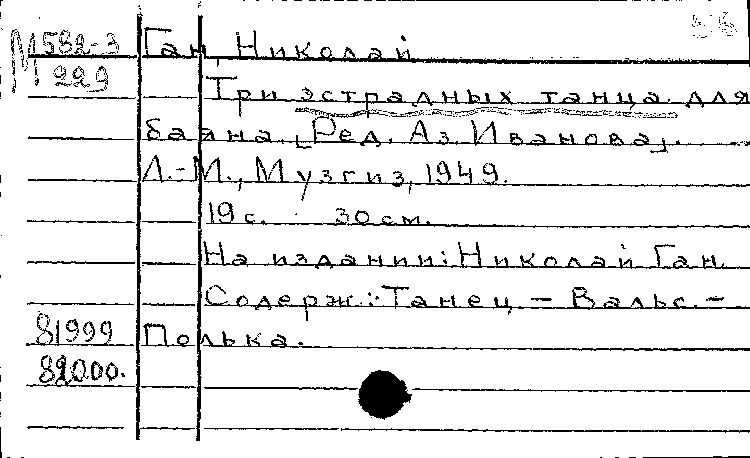 М 582-3
229
Ган, Николай
Три эстрадных танца для
баяна. [Ред. Аз. Иванова].
Л.-М., Музгиз, 1949.
19 с. 30 см.
На издании: Николай Ган.
Содерж.: Танец. – Вальс. –
Полька.
81999
82000.